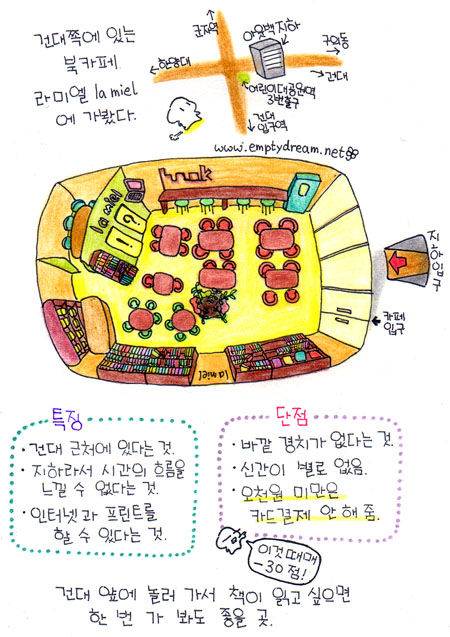 건대쪽에 있는
북카페
라미엘 la miel
에 가봤다.
군자역
아웃백지하
구의동
한양대
건대
어린이대공원역
3번출구
건대
입구역
www.emptydream.net
book
la miel
지하입구
카페
입구
la miel
특징
· 건대 근처에 있다는 것.
· 지하라서 시간의 흐름을
느낄 수 없다는 것.
· 인터넷과 프린트를
할 수 있다는 것.
단점
· 바깥 경치가 없다는 것.
· 신간이 별로 없음.
· 오천원 미만은
카드결제 안 해 줌.
이것 때매
-30점!
건대 앞에 놀러 가서 책이 읽고 싶으면
한 번 가 봐도 좋을 곳.